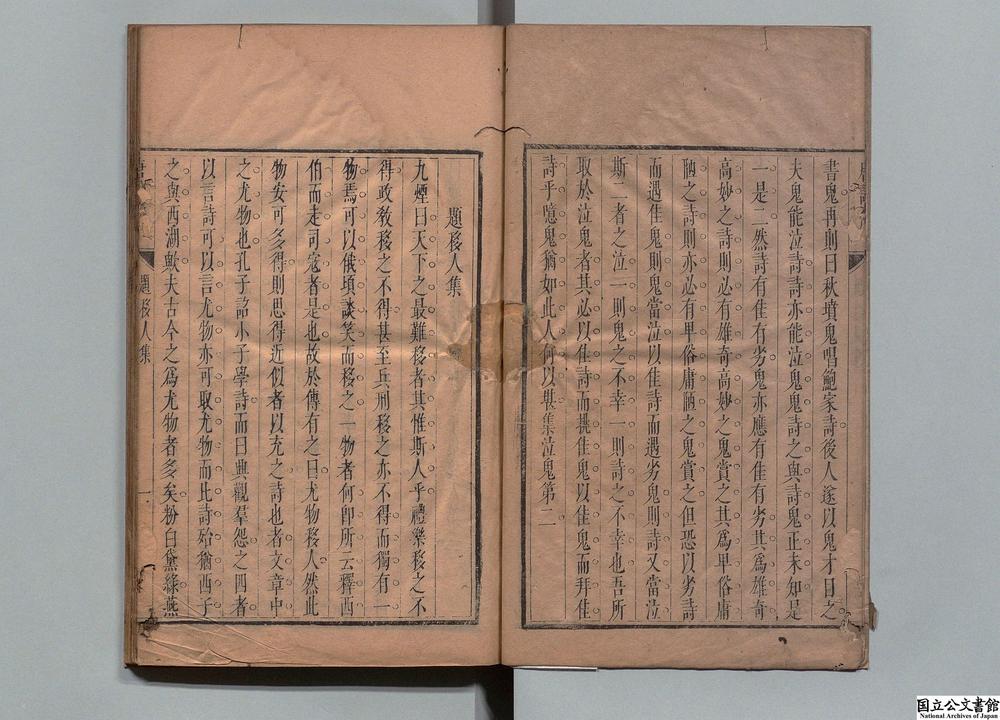 書鬼再則曰秋墳鬼唱鮑家詩後人遂以鬼才目之
夫鬼能泣詩詩亦能泣鬼鬼詩之與詩鬼正未知是
一是二然詩有佳有劣鬼亦應有佳有劣其爲雄奇
高妙之詩則必有雄奇高妙之鬼賞之其爲卑俗庸
陋之詩則亦必有卑俗庸陋之鬼賞之但恐以劣詩
而遇佳鬼則鬼當泣以佳詩而遇劣鬼則詩又當泣
斯二者之泣一則鬼之不幸一則詩之不幸也吾所
取於泣鬼者其必以佳詩而挑佳鬼以佳鬼而拜佳
詩乎噫鬼猶如此人何以堪集泣鬼第二
題移人集
九煙曰天下之最難移者其惟斯人乎禮樂移之不
得政敎移之不得甚至兵刑移之亦不得而獨有一
物焉可以俄頃談笑而移之一物者何卽所云釋西
伯而走司寇者是也故於傳有之曰尤物移人然此
物安可多得則思得近似者以充之詩也者文章中
之尤物也孔子詔小子學詩而曰興觀羣怨之四者
以言詩可以言尤物亦可取尤物而比詩殆猶西子
之與西湖歟夫古今之爲尤物者多矣粉白黛綠燕
題移人集
一
国立公文書館
National Archives of Japan